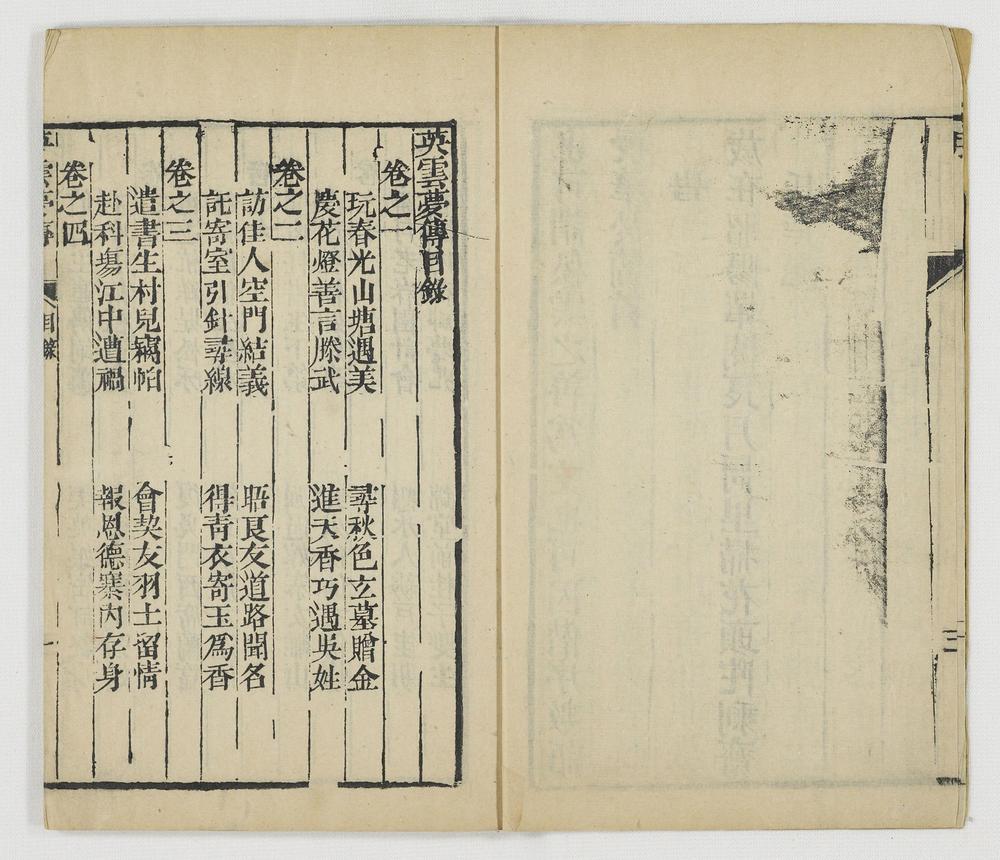 英雲夢傳目錄
卷之一
玩春光山塘遇美 尋秋色玄墓贈金
慶花燈善言勝武 進天香巧遇吳姓
卷之二
訪佳人空門結義 晤良友道路聞名
託寄室引針尋線 得靑衣寄玉爲香
卷之三
遣書生村兒竊帕 會契友羽士留情
赴科塲江中遭禍 報恩德寨內存身
卷之四
雲夢傳 目錄 一
三